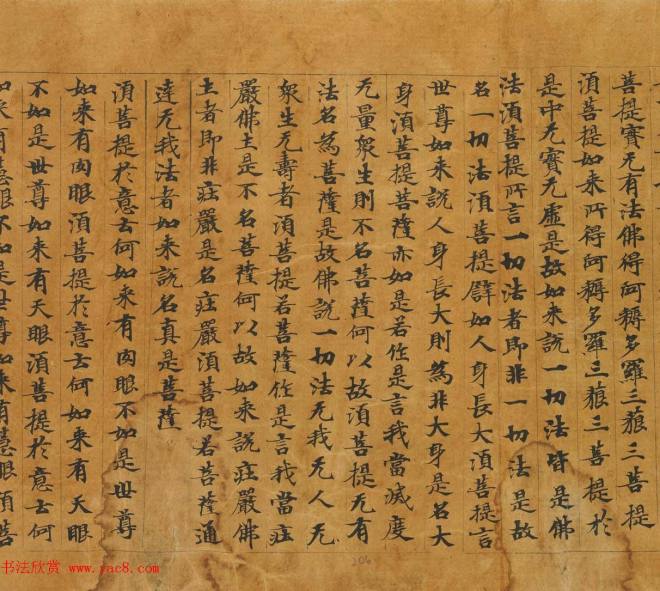 菩提實无有法佛得阿耨多羅三藐三菩提
湏菩提如来所得阿耨多羅三藐三菩提於
是中无實无虛是故如来說一切法皆是佛
法湏菩提所言一切法者即非一切法是故
名一切法湏菩提譬如人身長大湏菩提言
世尊如来說人身長大則為非大身是名大
身湏菩提菩薩亦如是若作是言我當滅度
无量衆生則不名菩薩何以故湏菩提无有
法名為菩薩是故佛說一切法无我无人无
衆生无壽者湏菩提若菩薩作是言我當莊
嚴佛土是不名菩薩何以故如来說莊嚴佛
土者即非莊嚴是名莊嚴湏菩提若菩薩通
達无我法者如来說名真是菩薩
湏菩提於意云何如来有肉眼不如是世尊
如来有肉眼湏菩提於意云何如来有天眼
不如是世尊如来有天眼湏菩提於意云何
如来有慧眼不如是世尊如来有慧眼湏菩
206
书法欣赏 www.yac8.com